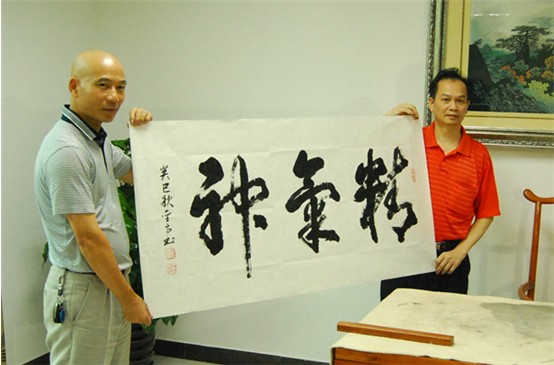 精氣神
癸巳秋